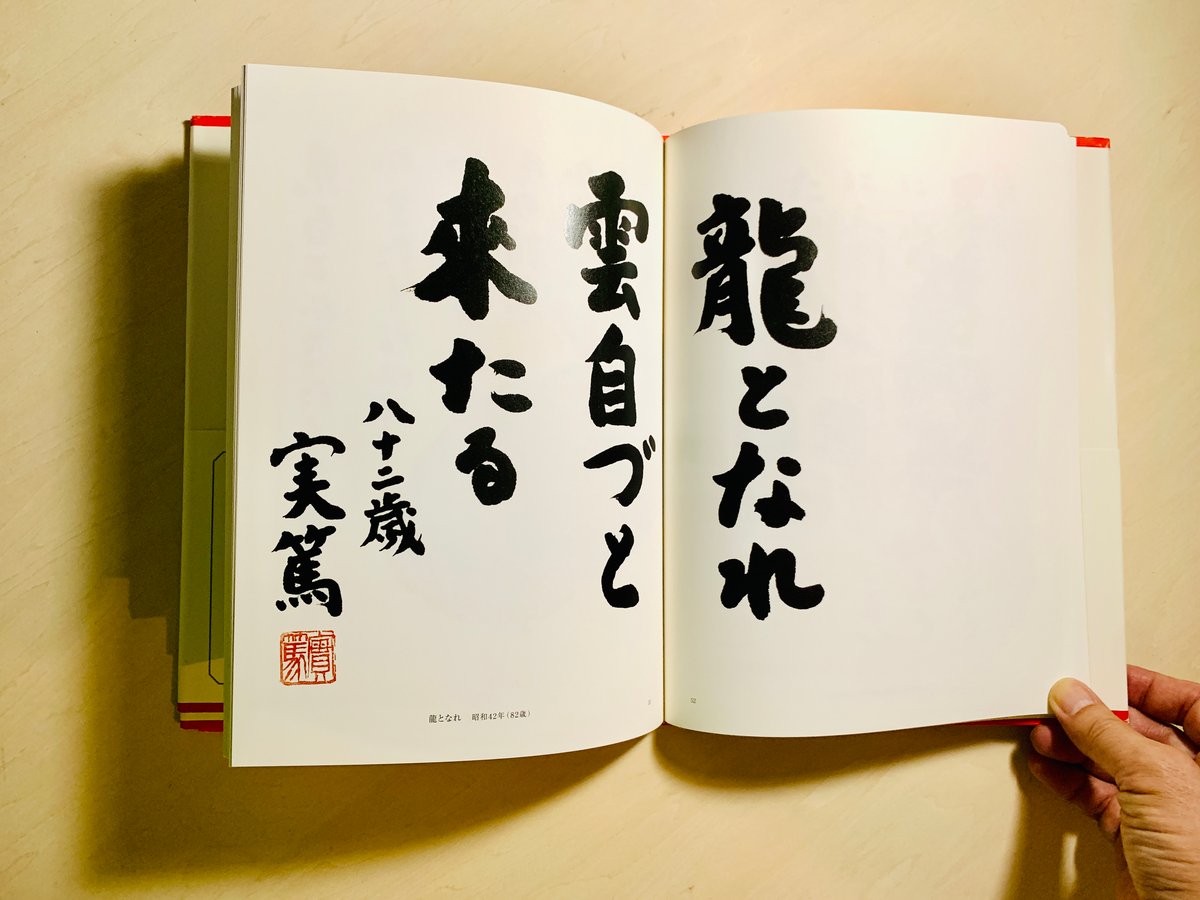 龍となれ
雲自づと
来たる
八十二歳
実篤
實篤
龍となれ 昭和42年(82歳)
52